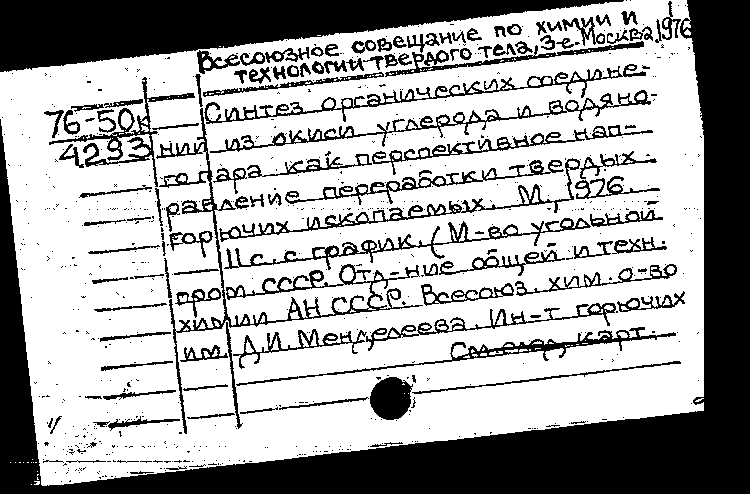 Всесоюзное совещание по химии и
технологии твердого тела, 3-е. Москва, 1976
76-50к
4293
Синтез органических соедине-
ний из окиси углерода и водяно-
го пара как перспективное нап-
равление переработки твердых
горючих ископаемых. М., 1976.
11 с. с график. (М-во угольной
пром. СССР. Отд-ние общей и техн.
химии АН СССР. Всесоюз. хим. о-во
им. Д.И. Менделеева. Ин-т горючих
См. след. карт.